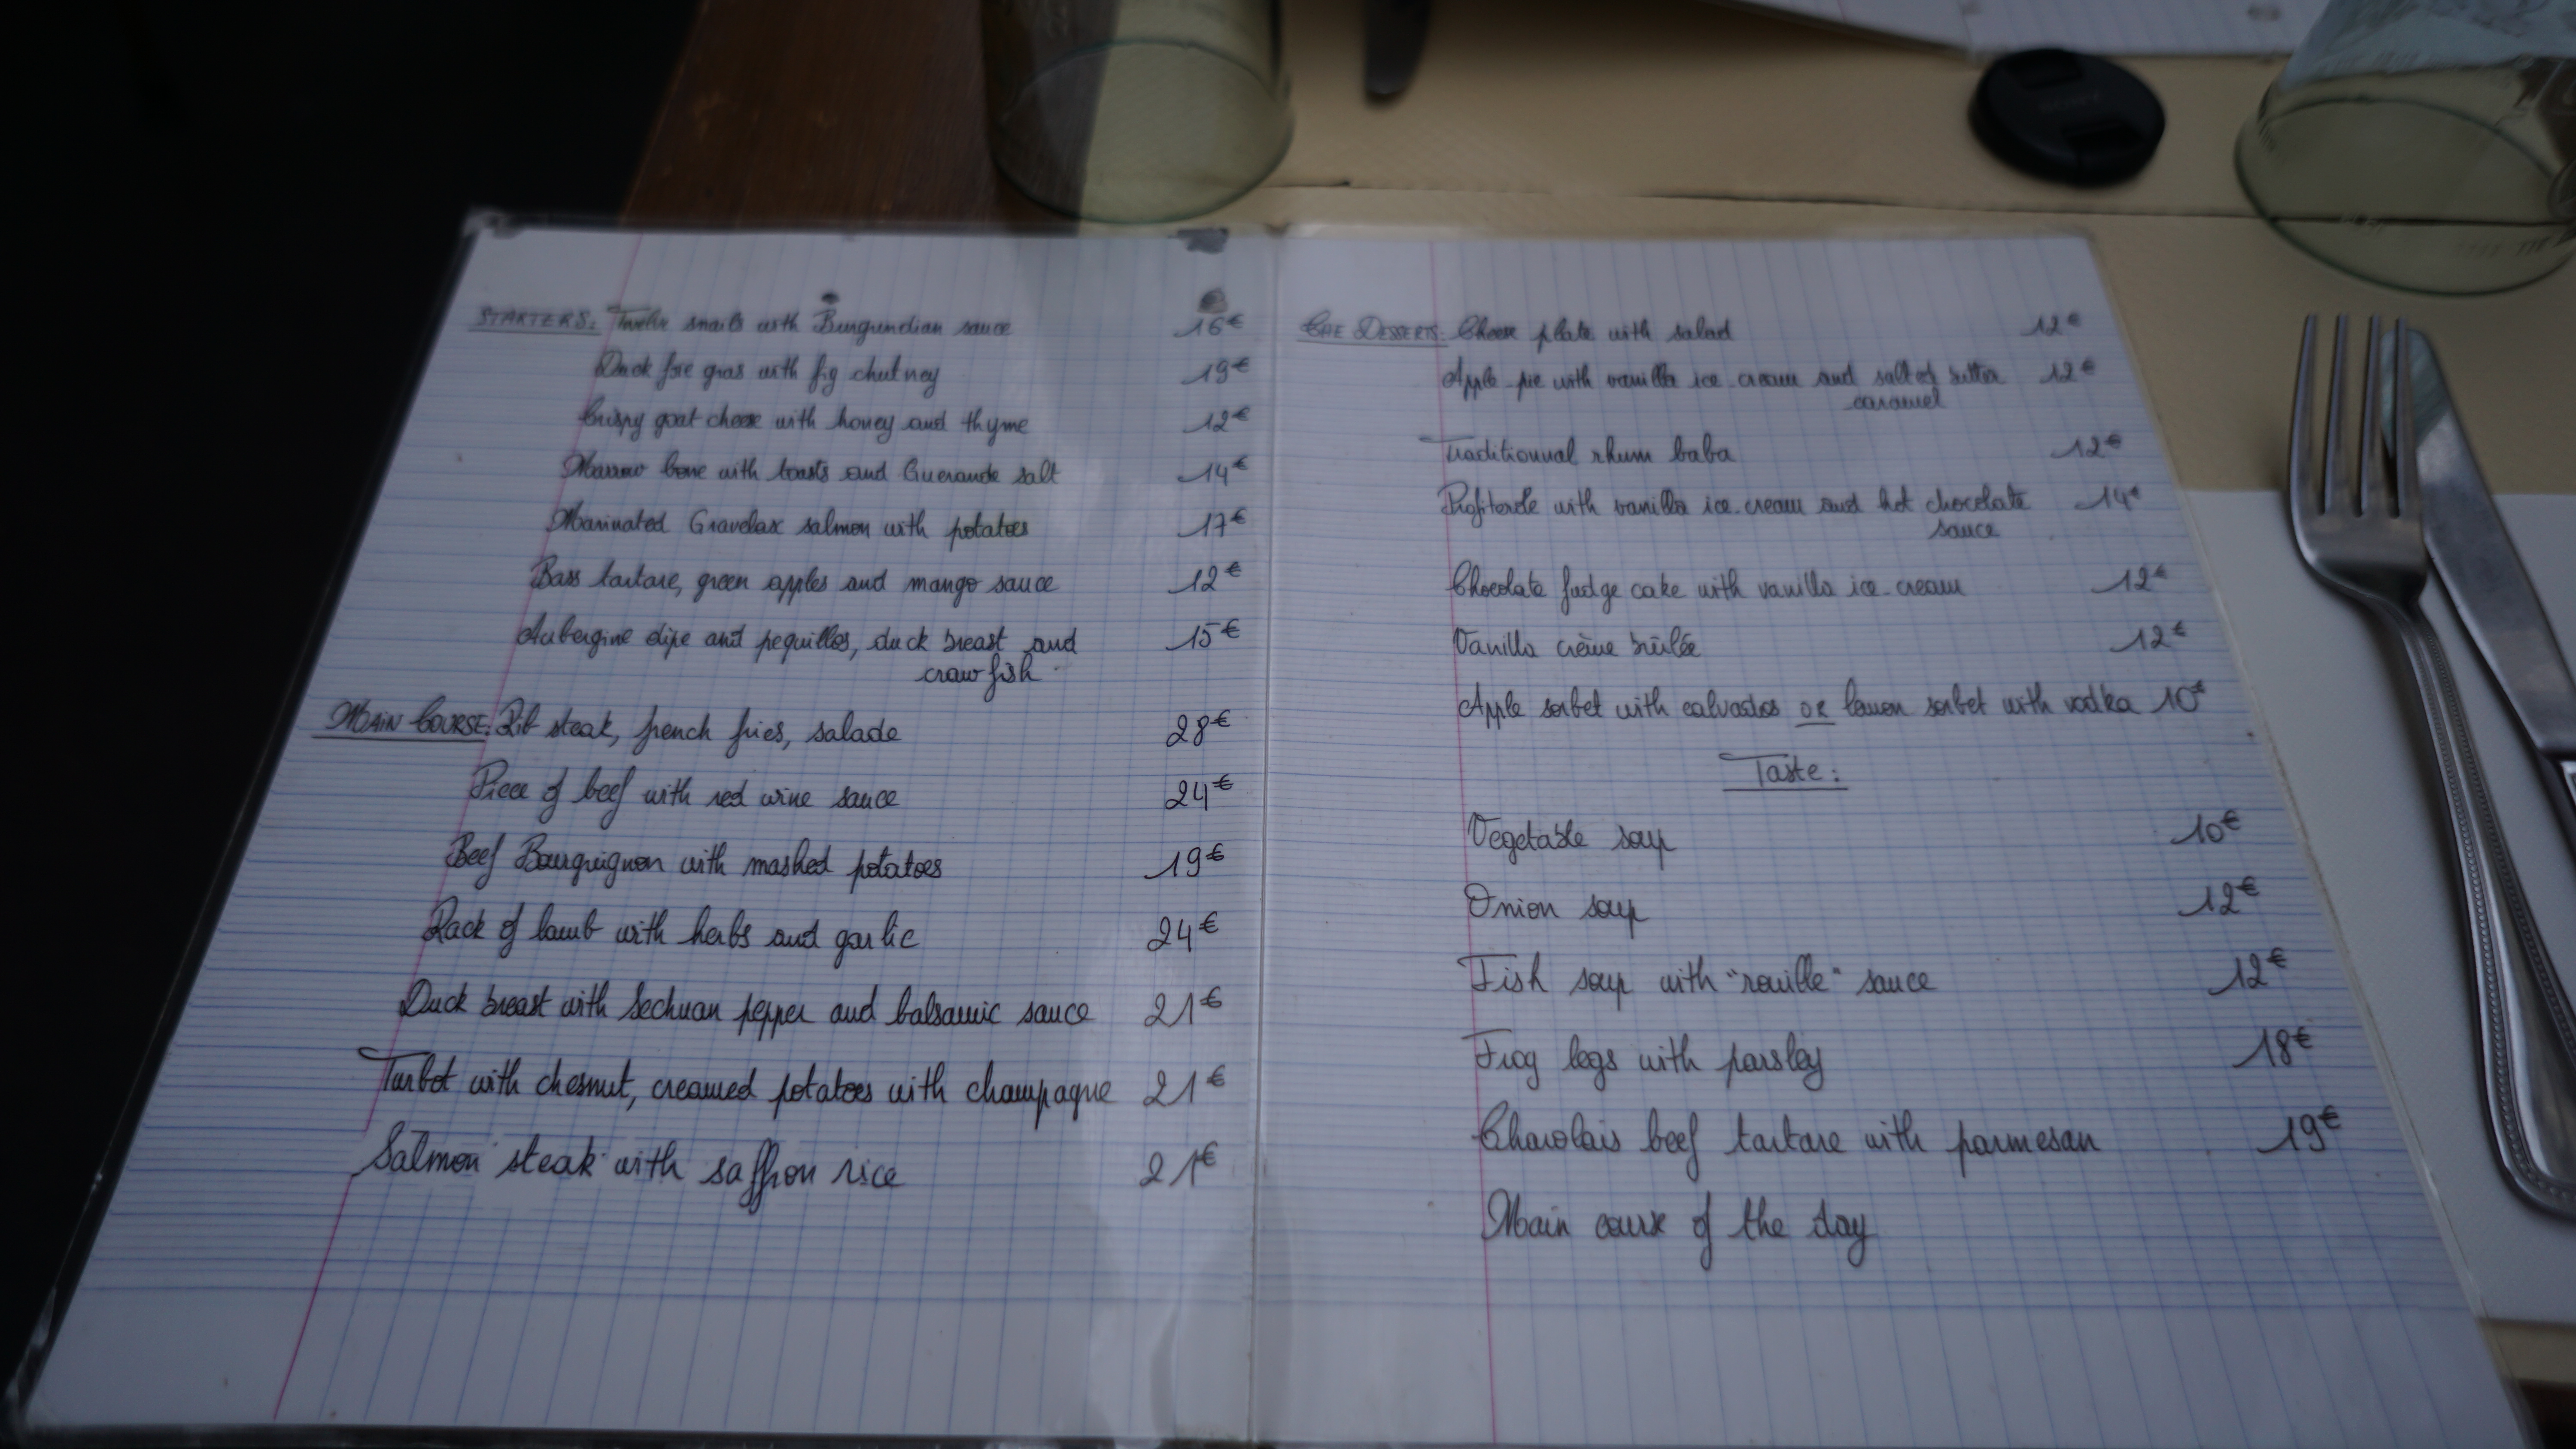 STARTERS: Twelve snails with Burgundian sauce 16€
Duck foie gras with fig chutney 19€
Crispy goat cheese with honey and thyme 12€
Marrow bone with toasts and Guerande salt 14€
Marinated Gravelax salmon with potatoes 17€
Bass tartare, green apples and mango sauce 12€
Aubergine dipe and pequillos, duck breast and 15€
crawfish
MAIN COURSE: Rib steak, french fries, salade 28€
Piece of beef with red wine sauce 24€
Beef Bourguignon with mashed potatoes 19€
Rack of lamb with herbs and garlic 24€
Duck breast with Sechuan pepper and balsamic sauce 21€
Turbot with chesnut, creamed potatoes with champagne 21€
Salmon steak with saffron rice 21€
THE DESSERTS: Cheese plate with salad 12€
Apple pie with vanilla ice-cream and salted butter 12€
caramel
Traditionnal rhum baba 12€
Profiterole with vanilla ice-cream and hot chocolate 14€
sauce
Chocolate fudge cake with vanilla ice-cream 12€
Vanilla crème brûlée 12€
Apple sorbet with calvados OR lemon sorbet with vodka 10€
Taste:
Vegetable soup 10€
Onion soup 12€
Fish soup with "rouille" sauce 12€
Frog legs with parsley 18€
Charolais beef tartare with parmesan 19€
Main course of the day